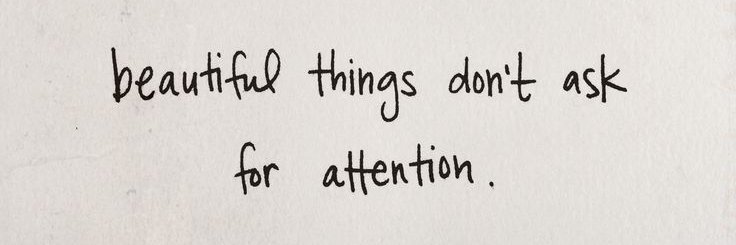 beautiful things don't ask
for attention.